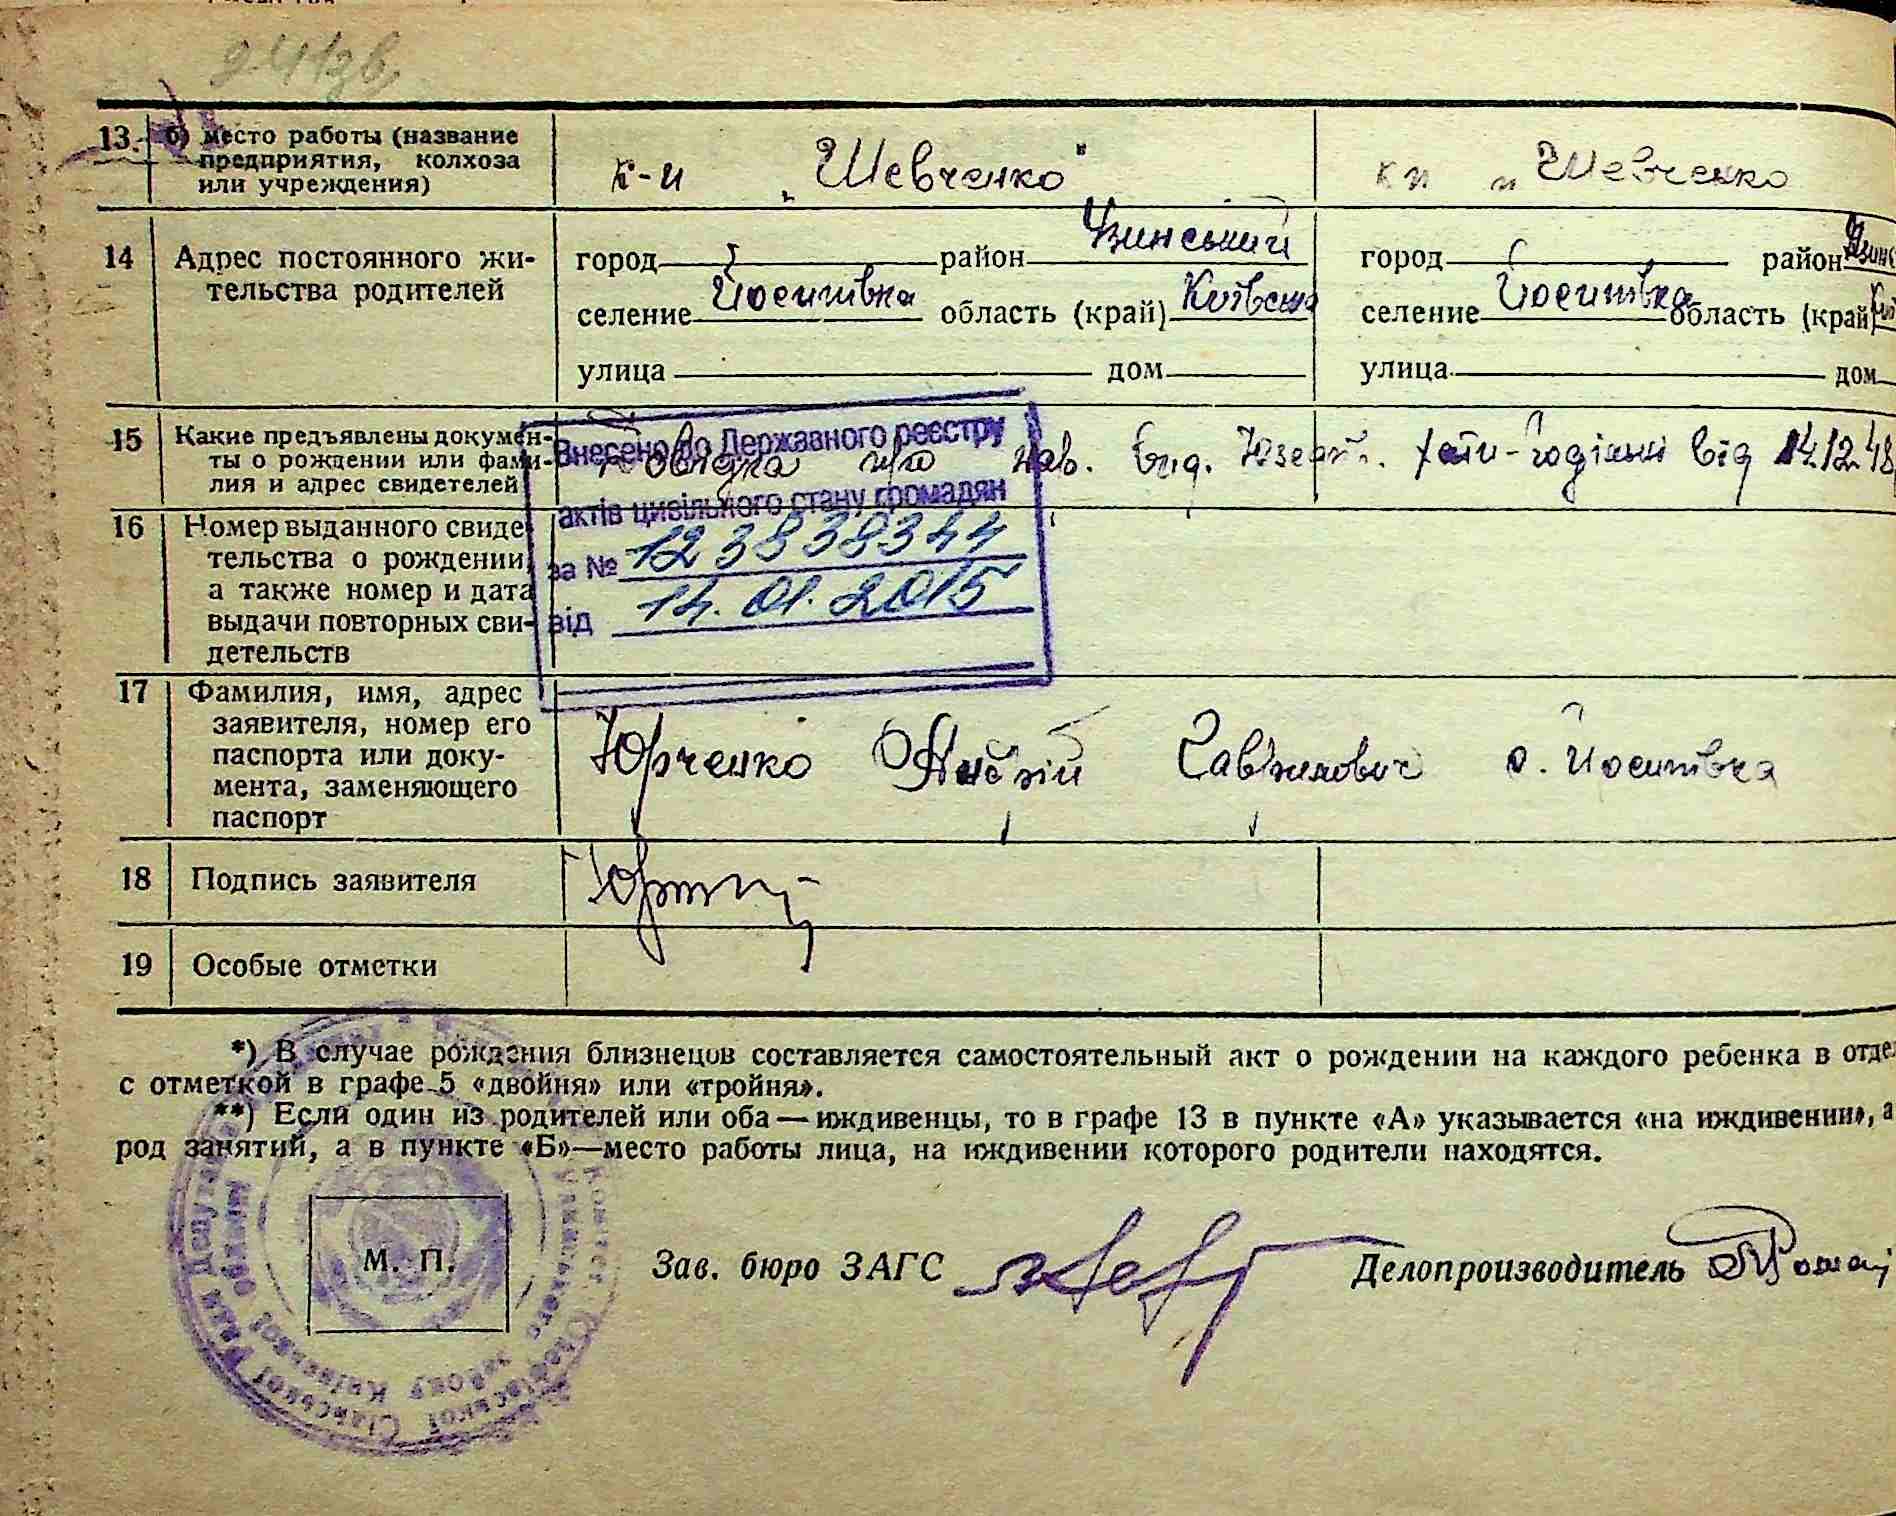 13. б) место работы (название
предприятия, колхоза
или учреждения)
к-п „Шевченко"
кп „Шевченко
14 Адрес постоянного жи-
тельства родителей
город район Узинський
селение Йосипівка область (край) Київська
улица дом
город район
селение Йосипівка область (край)
улица дом
15 Какие предъявлены докумен-
ты о рождении или фами-
лия и адрес свидетелей
Довідка про нар. вид. хати-родільні від 14.12.48
Внесено до Державного реєстру
актів цивільного стану громадян
за № 123838344
від 14.01.2015
16 Номер выданного свиде-
тельства о рождении,
а также номер и дата
выдачи повторных сви-
детельств
17 Фамилия, имя, адрес
заявителя, номер его
паспорта или доку-
мента, заменяющего
паспорт
Юрченко Гаврилович с. Йосипівка
18 Подпись заявителя
19 Особые отметки
*) В случае рождения близнецов составляется самостоятельный акт о рождении на каждого ребенка в
с отметкой в графе 5 «двойня» или «тройня».
**) Если один из родителей или оба — иждивенцы, то в графе 13 в пункте «А» указывается «на иждивении», а
род занятий, а в пункте «Б»—место работы лица, на иждивении которого родители находятся.
М. П.
Зав. бюро ЗАГС
Делопроизводитель